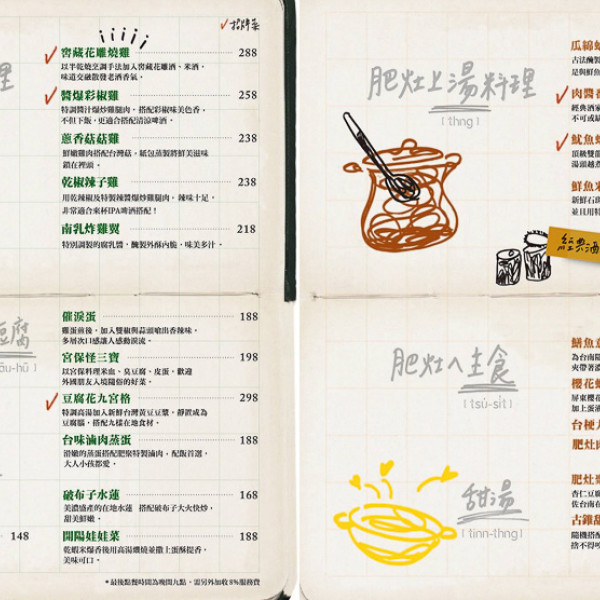 ✓招牌菜
窖藏花雕燒雞 288
以半乾燒烹調手法加入窖藏花雕酒、米酒，
味道交融散發老酒香氣。
醬爆彩椒雞 258
特調醬汁爆炒雞腿肉，搭配彩椒味美色香，
不但下飯，更適合搭配清涼啤酒。
蔥香菇菇雞 238
鮮嫩雞肉搭配台灣菇，紙包蒸製將鮮美滋味
鎖在裡頭。
乾椒辣子雞 238
用乾辣椒及特製辣醬爆炒雞腿肉，辣味十足，
非常適合來杯IPA啤酒搭配！
南乳炸雞翼 218
特別調製的腐乳醬，醃製外酥內脆，味美多汁。
理
豆腐
āu-hū ]
148
催淚蛋 188
雞蛋煎後，加入雙椒與蒜頭嗆出香辣味，
多層次口感讓人感動淚流。
宮保怪三寶 198
以宮保料理米血、臭豆腐、皮蛋，歡迎
外國朋友入境隨俗的好菜。
豆腐花九宮格 298
特調高湯加入新鮮台灣黃豆豆漿，靜置成為
豆腐腦，搭配九樣在地食材。
台味滷肉蒸蛋 188
滑嫩的蒸蛋搭配肥聚特製滷肉，配飯首選，
大人小孩都愛。
破布子水蓮 168
美濃盛產的在地水蓮 搭配破布子大火快炒，
甜美鮮嫩。
開陽娃娃菜 188
乾蝦米爆香後用高湯燉燒並撒上蛋酥提香，
美味可口。
*最後點餐時間為晚間九點，需另外加收8%服務費
肥灶上湯料理
[ thng ]
瓜綿
古法醃製
是與鮮魚
肉醬
經典酒家
不可或缺
魷魚
頂級雙
湯頭越煮
鮮魚米
新鮮石斑
並且用特
經典酒
肥灶ㄟ主食
[ tsú-si̍t ]
甜湯
[ tinn-thng ]
鱔魚意
為台南
夾帶著濃
櫻花蝦
屏東櫻花
加上蛋液
台梗
肥灶
肥灶
杏仁豆腐
佐台南在
古雞甜
隨機搭配
捨不得